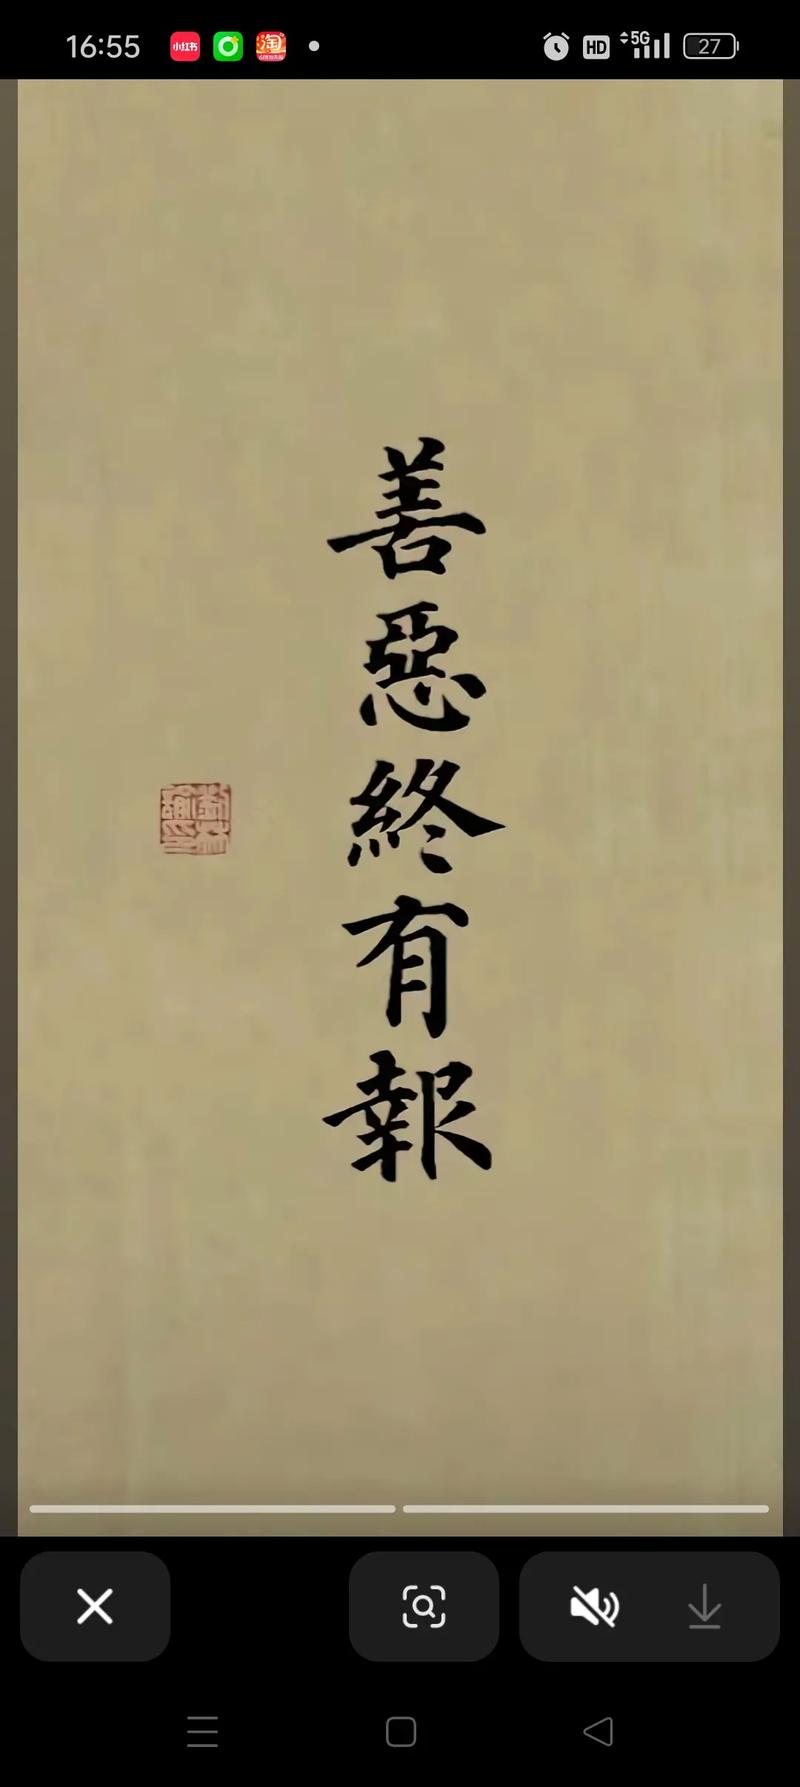 16:55
小红书
淘
HD
5G
27
善惡終有報